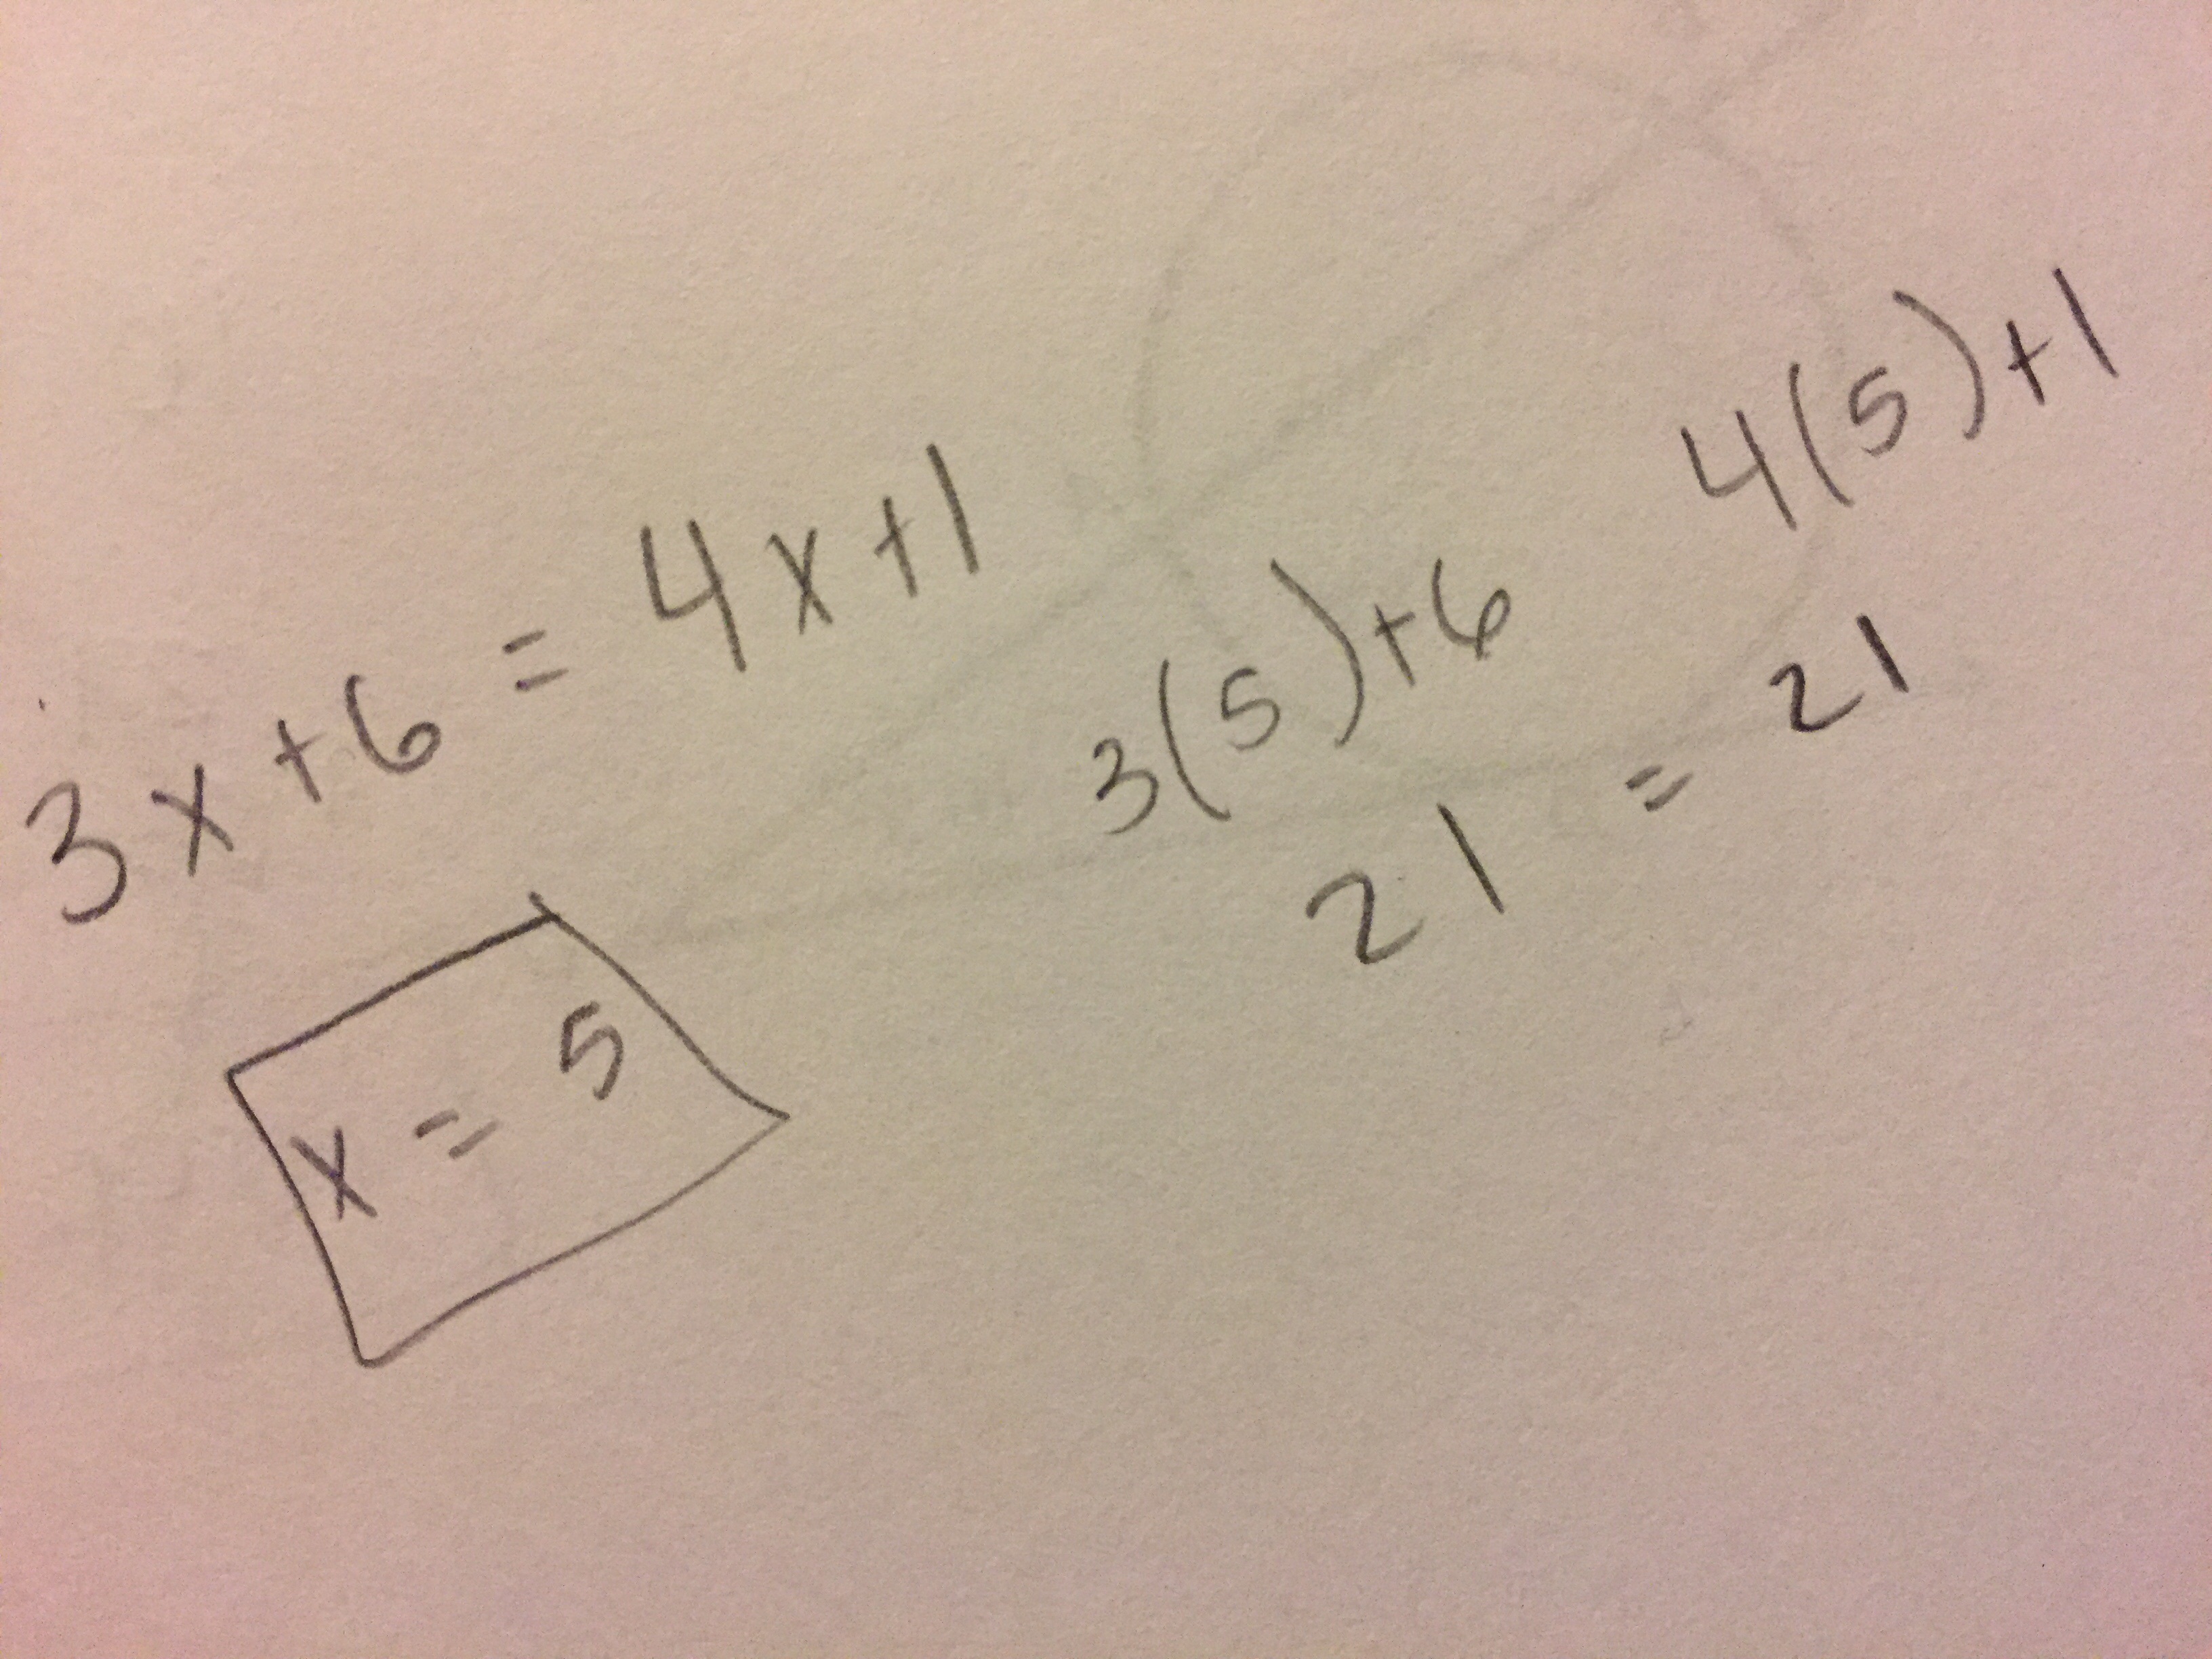 3x+6 = 4x+1
x = 5
3(5)+6 4(5)+1
21 = 21